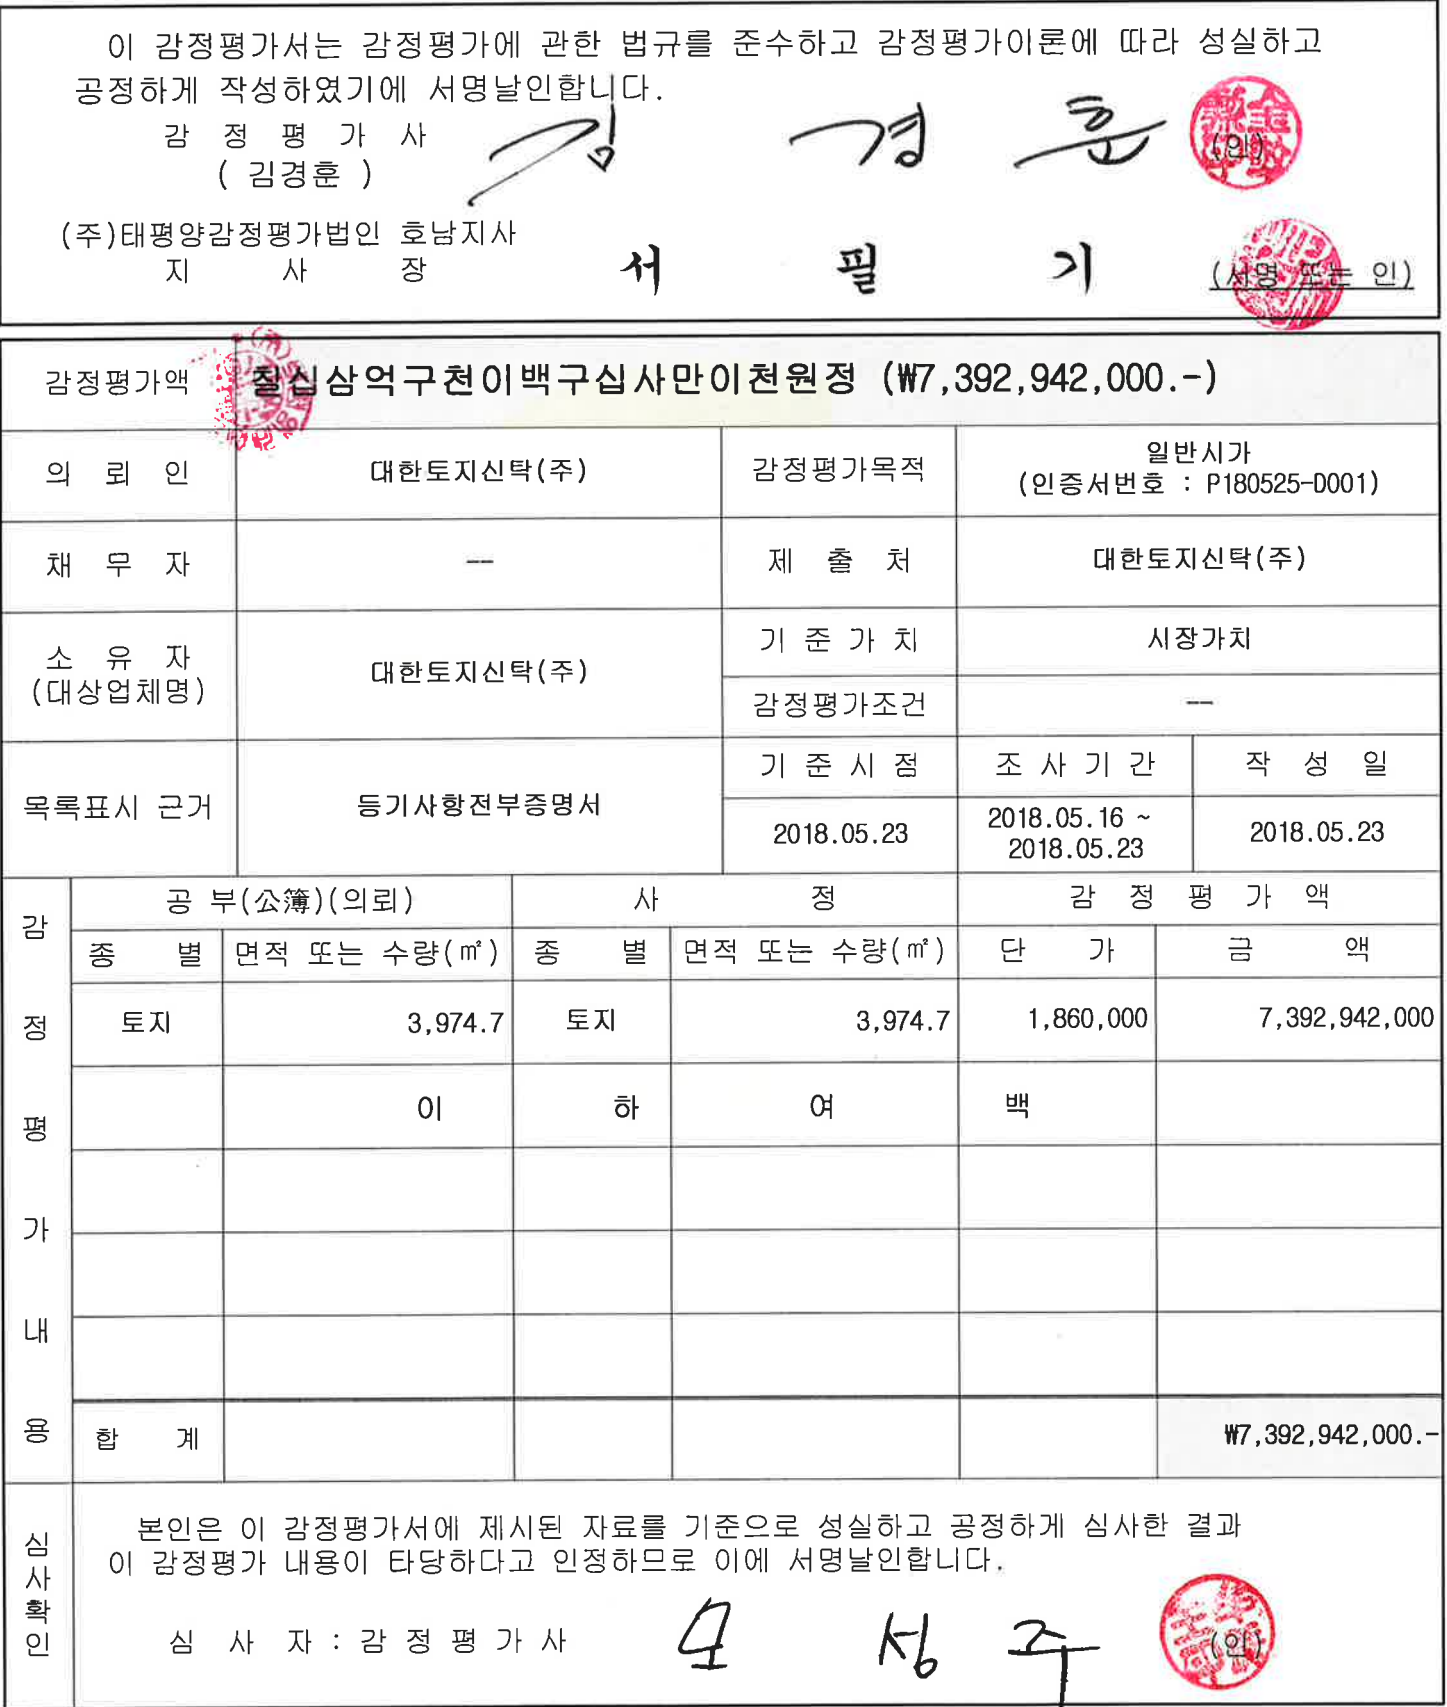 이 감정평가서는 감정평가에 관한 법규를 준수하고 감정평가이론에 따라 성실하고
공정하게 작성하였기에 서명날인합니다.
감 정 평 가 사
( 김경훈 )
김 경 훈 (인)
(주)태평양감정평가법인 호남지사
지 사 장 서 필 기 (서명 또는 인)
감정평가액 칠십삼억구천이백구십사만이천원정 (₩7,392,942,000.-)
의 뢰 인 대한토지신탁(주) 감정평가목적 일반시가
(인증서번호 : P180525-D001)
채 무 자 -- 제 출 처 대한토지신탁(주)
소 유 자
(대상업체명) 대한토지신탁(주) 기 준 가 치 시장가치
감정평가조건 --
목록표시 근거 등기사항전부증명서 기 준 시 점 조 사 기 간 작 성 일
2018.05.23 2018.05.16 ~
2018.05.23 2018.05.23
감 정 평 가 내 용
공 부(公簿)(의뢰) 사 정 감 정 평 가 액
종 별 면적 또는 수량(㎡) 종 별 면적 또는 수량(㎡) 단 가 금 액
토지 3,974.7 토지 3,974.7 1,860,000 7,392,942,000
이 하 여 백
합 계 ₩7,392,942,000.-
심사확인
본인은 이 감정평가서에 제시된 자료를 기준으로 성실하고 공정하게 심사한 결과
이 감정평가 내용이 타당하다고 인정하므로 이에 서명날인합니다.
심 사 자 : 감 정 평 가 사 모 성 주 (인)